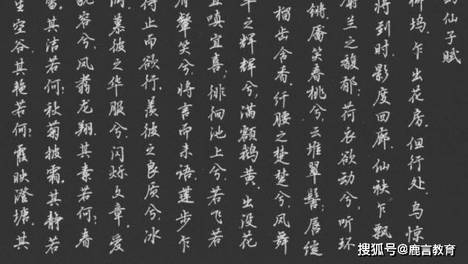 幻仙子赋
柳坞,乍出花房,但行处,鸟惊
将到时,影度回廊,仙袂乍飘
麝兰之馥郁;荷衣欲动兮听环
锵,靥笑春桃兮云堆翠髻;唇绽
榴齿含香,纤腰之楚楚兮风舞
翠之辉辉兮满额鹅黄,出没花
宜嗔宜喜;徘徊池上兮若飞若
眉颦笑兮将言而未语,莲步乍
待止而欲行,羡彼之良质兮冰
润,慕彼之华服兮闪烁文章,爱
貌容兮,凤翥龙翔,其素若何,春
雪,其洁若何,秋菊披霜,其静若
生空谷,其艳若何,霞映澄塘,其
搜狐号@鹿言教育